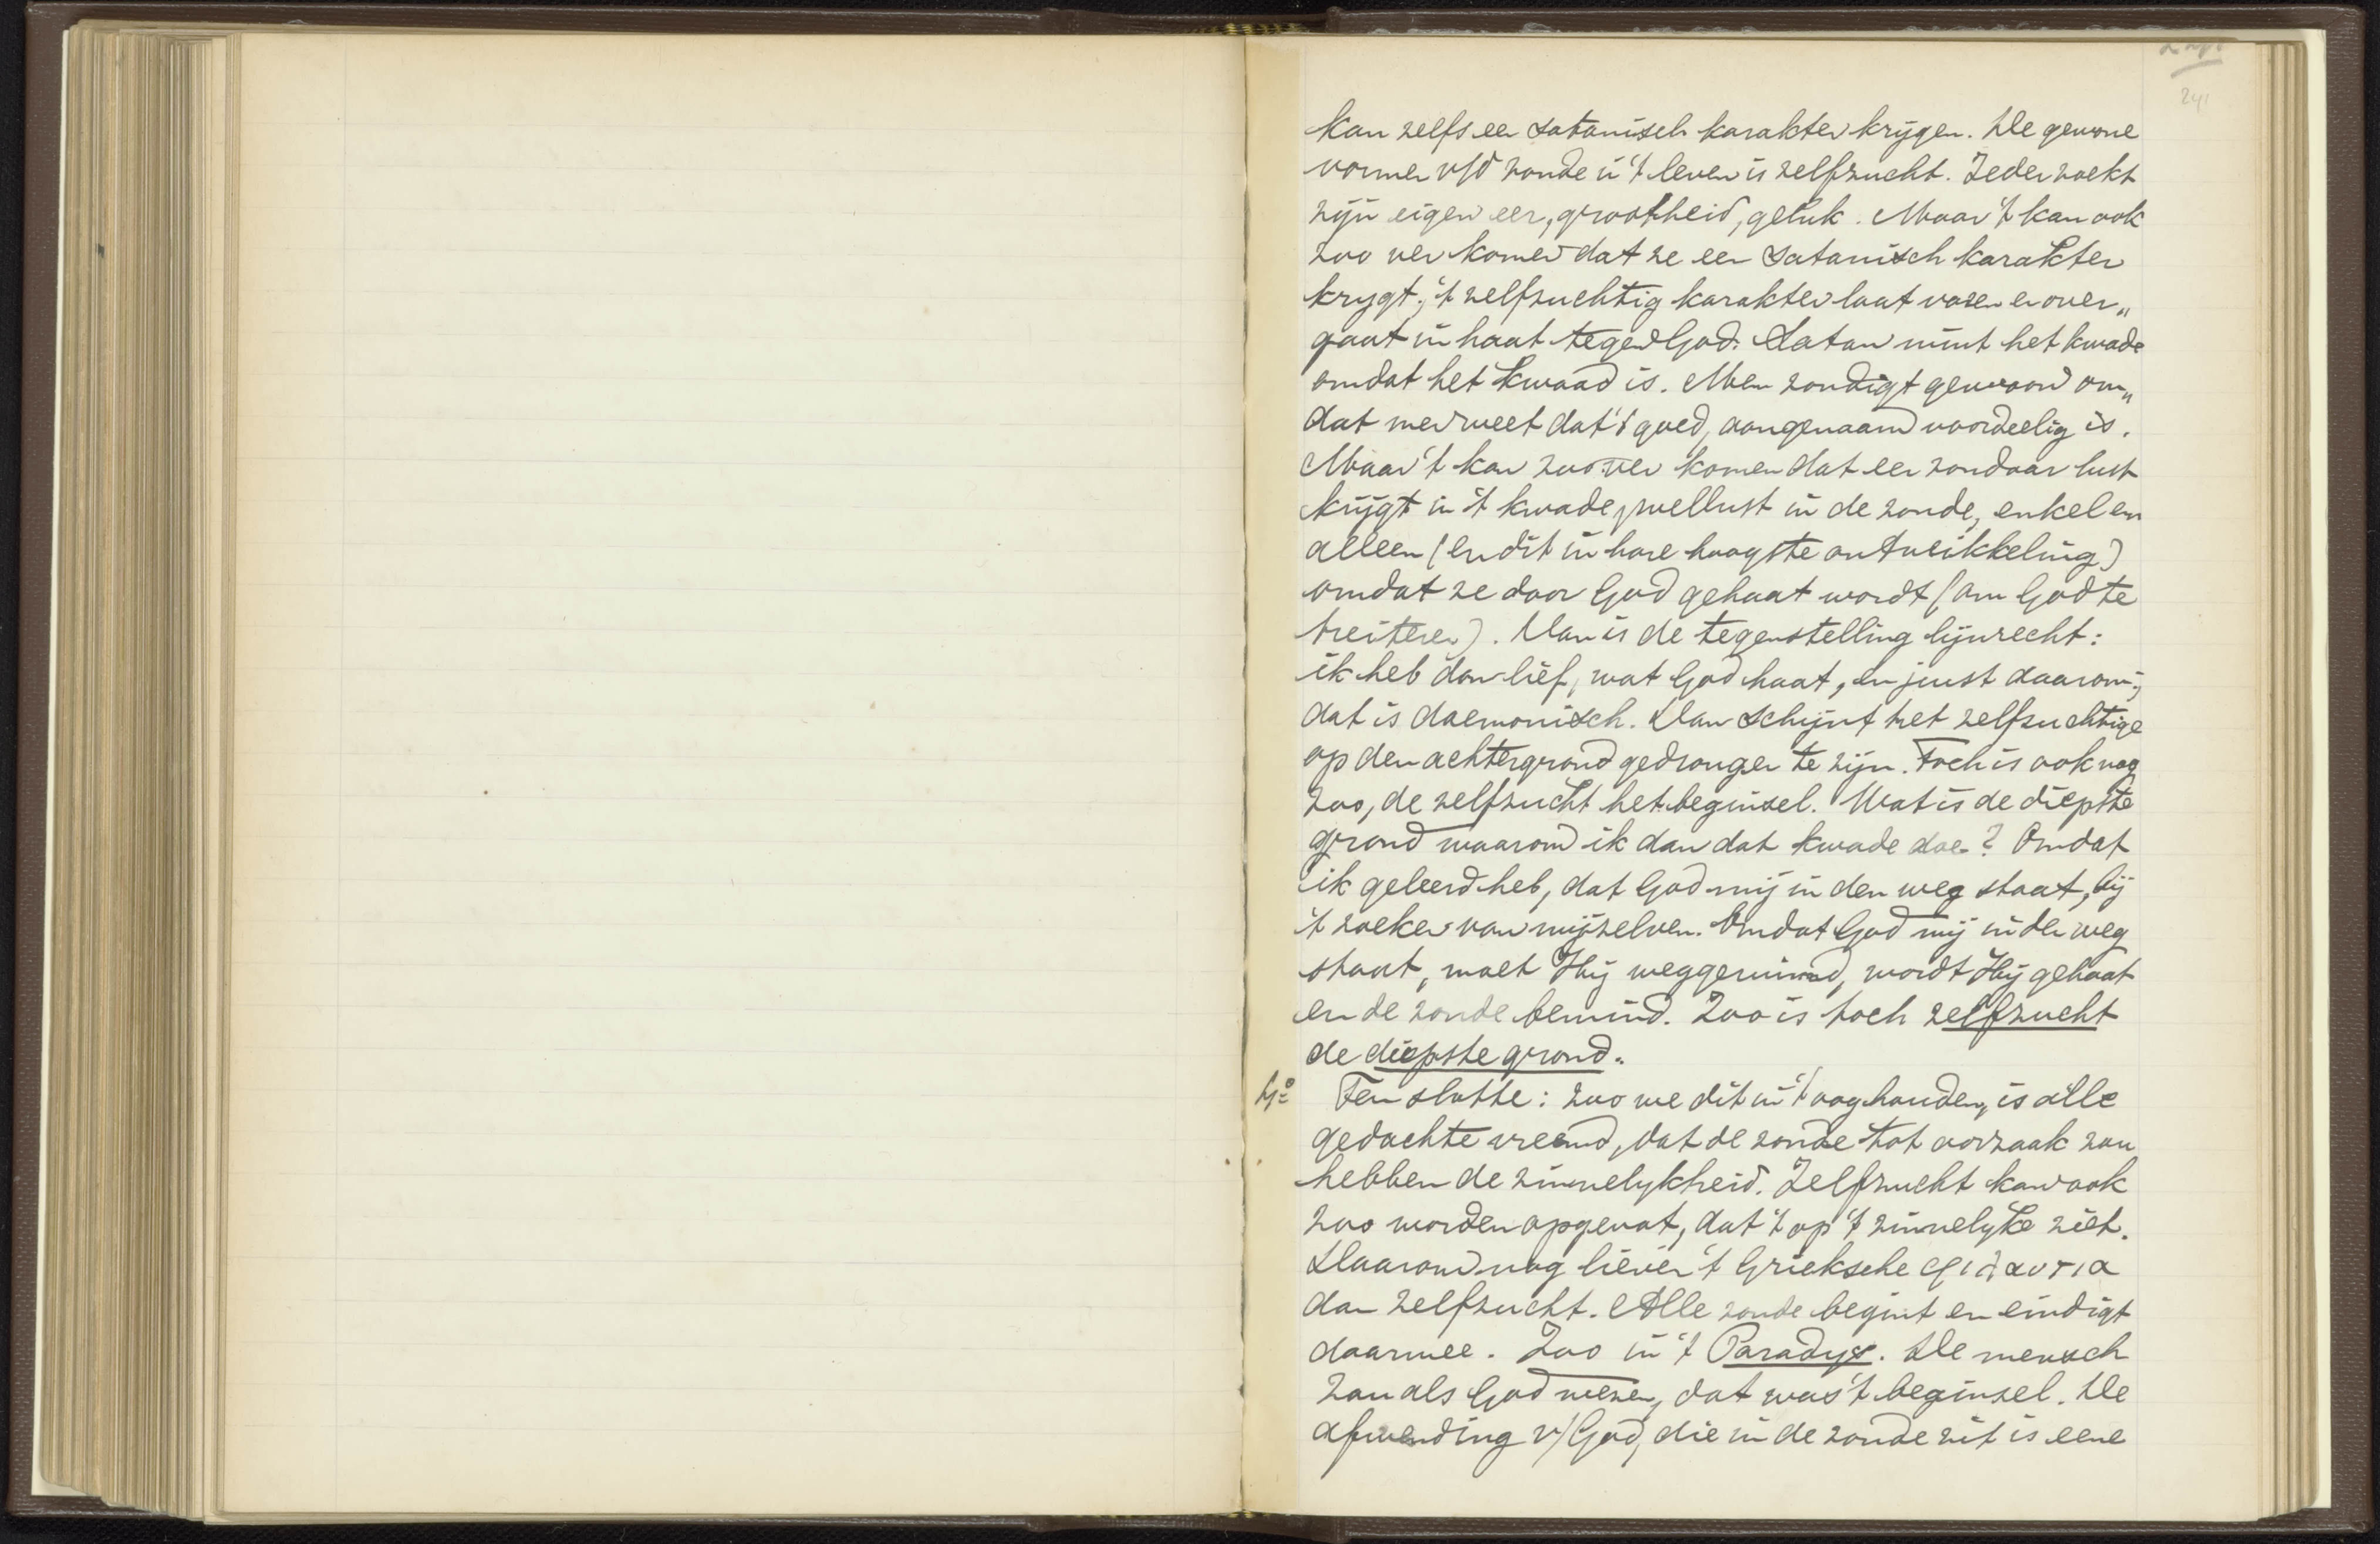 241
kan zelfs een satanisch karakter krijgen. De gewone
vormen v/d zonde in 't leven is zelfzucht. Ieder zoekt
zijn eigen eer, grootheid, geluk. Maar 't kan ook
zoo ver komen dat ze een satanisch karakter
krygt, 't zelfzuchtig karakter laat varen en over„
gaat in haat tegen God. Satan mint het kwade
omdat het kwaad is. Men zondigt gewoon om„
dat men weet dat 't goed, aangenaam voordeelig is.
Maar 't kan zoo ver komen dat een zondaar lust
krijgt in 't kwade, wellust in de zonde, enkel en
alleen (en dit in hare hoogste ontwikkeling)
omdat ze door God gehaat wordt (om God te
treiteren). Dan is de tegenstelling lijnrecht:
ik heb dan lief, wat God haat, en juist daarom;
dat is daemonisch. Dan schijnt het zelfzuchtige
op den achtergrond gedrongen te zijn. Toch is ook nog
zoo, de zelfzucht het beginsel. Wat is de diepste
grond waarom ik dan dat kwade doe? Omdat
ik geleerd heb, dat God mij in den weg staat, bij
't zoeken van mijzelven. Omdat God mij in den weg
staat, moet Hij weggeruimd, wordt Hij gehaat
en de zonde bemind. Zoo is toch zelfzucht
de diepste grond.
4º Ten slotte: zoo we dit in 't oog houden, is alle
gedachte vreemd, dat de zonde tot oorzaak zou
hebben de zinnelykheid. Zelfzucht kan ook
zoo worden opgevat, dat 't op 't zinnelyke ziet.
Daarom nog liever 't Grieksche φιλαυτια
dan zelfzucht. Alle zonde begint en eindigt
daarmee. Zoo in 't Paradys. De mensch
zou als God wezen, dat was 't beginsel. De
afwending v/ God, die in de zonde zit is eene